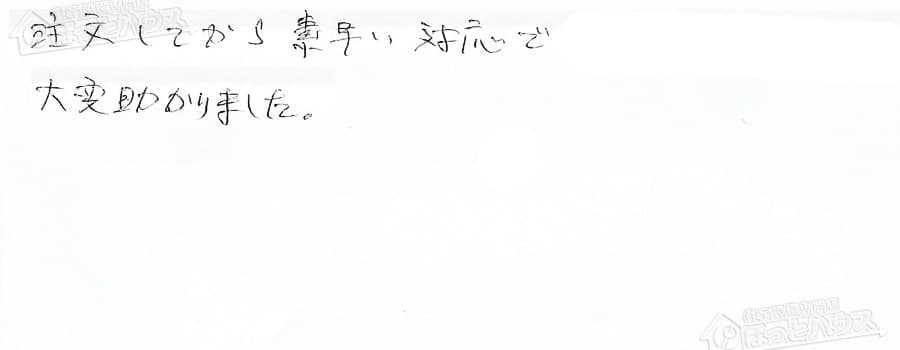 注文してから素早い対応で
大変助かりました。
ほっとハウス